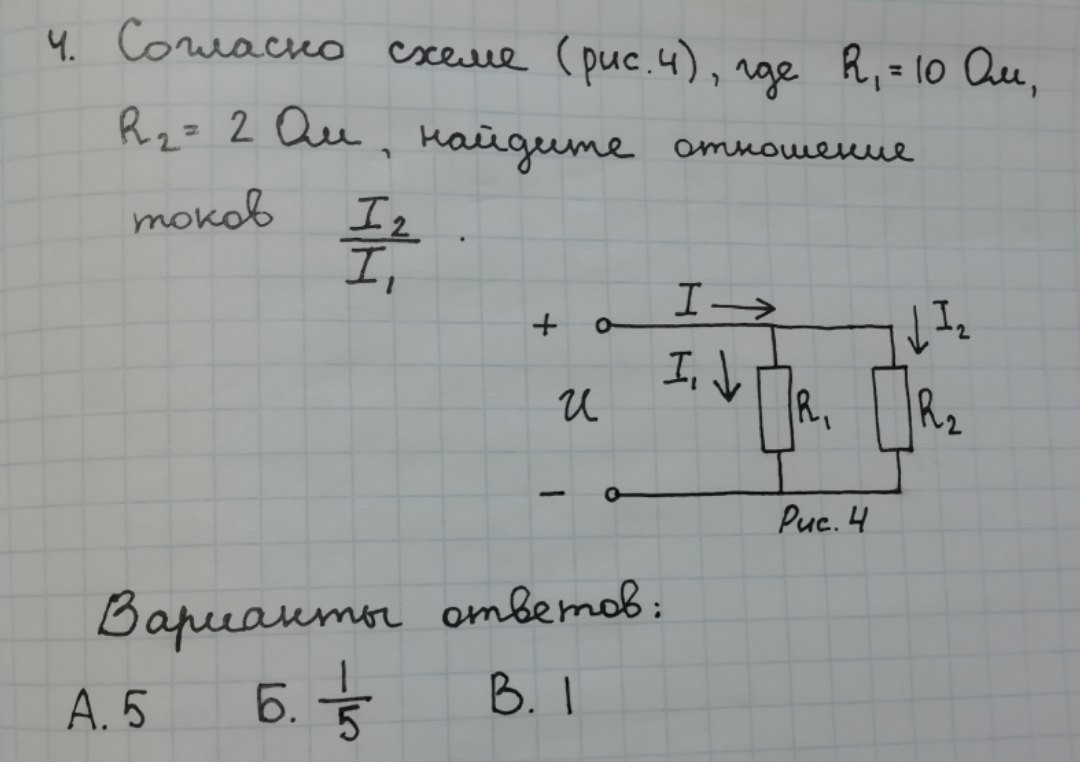 4. Согласно схеме (рис.4), где R₁=10 Ом,
R₂= 2 Ом, найдите отношение
токов I₂/I₁.
I
+
I₂
I₁
U
R₁
R₂
−
Рис. 4
Варианты ответов:
А. 5 Б. 1/5 В. 1